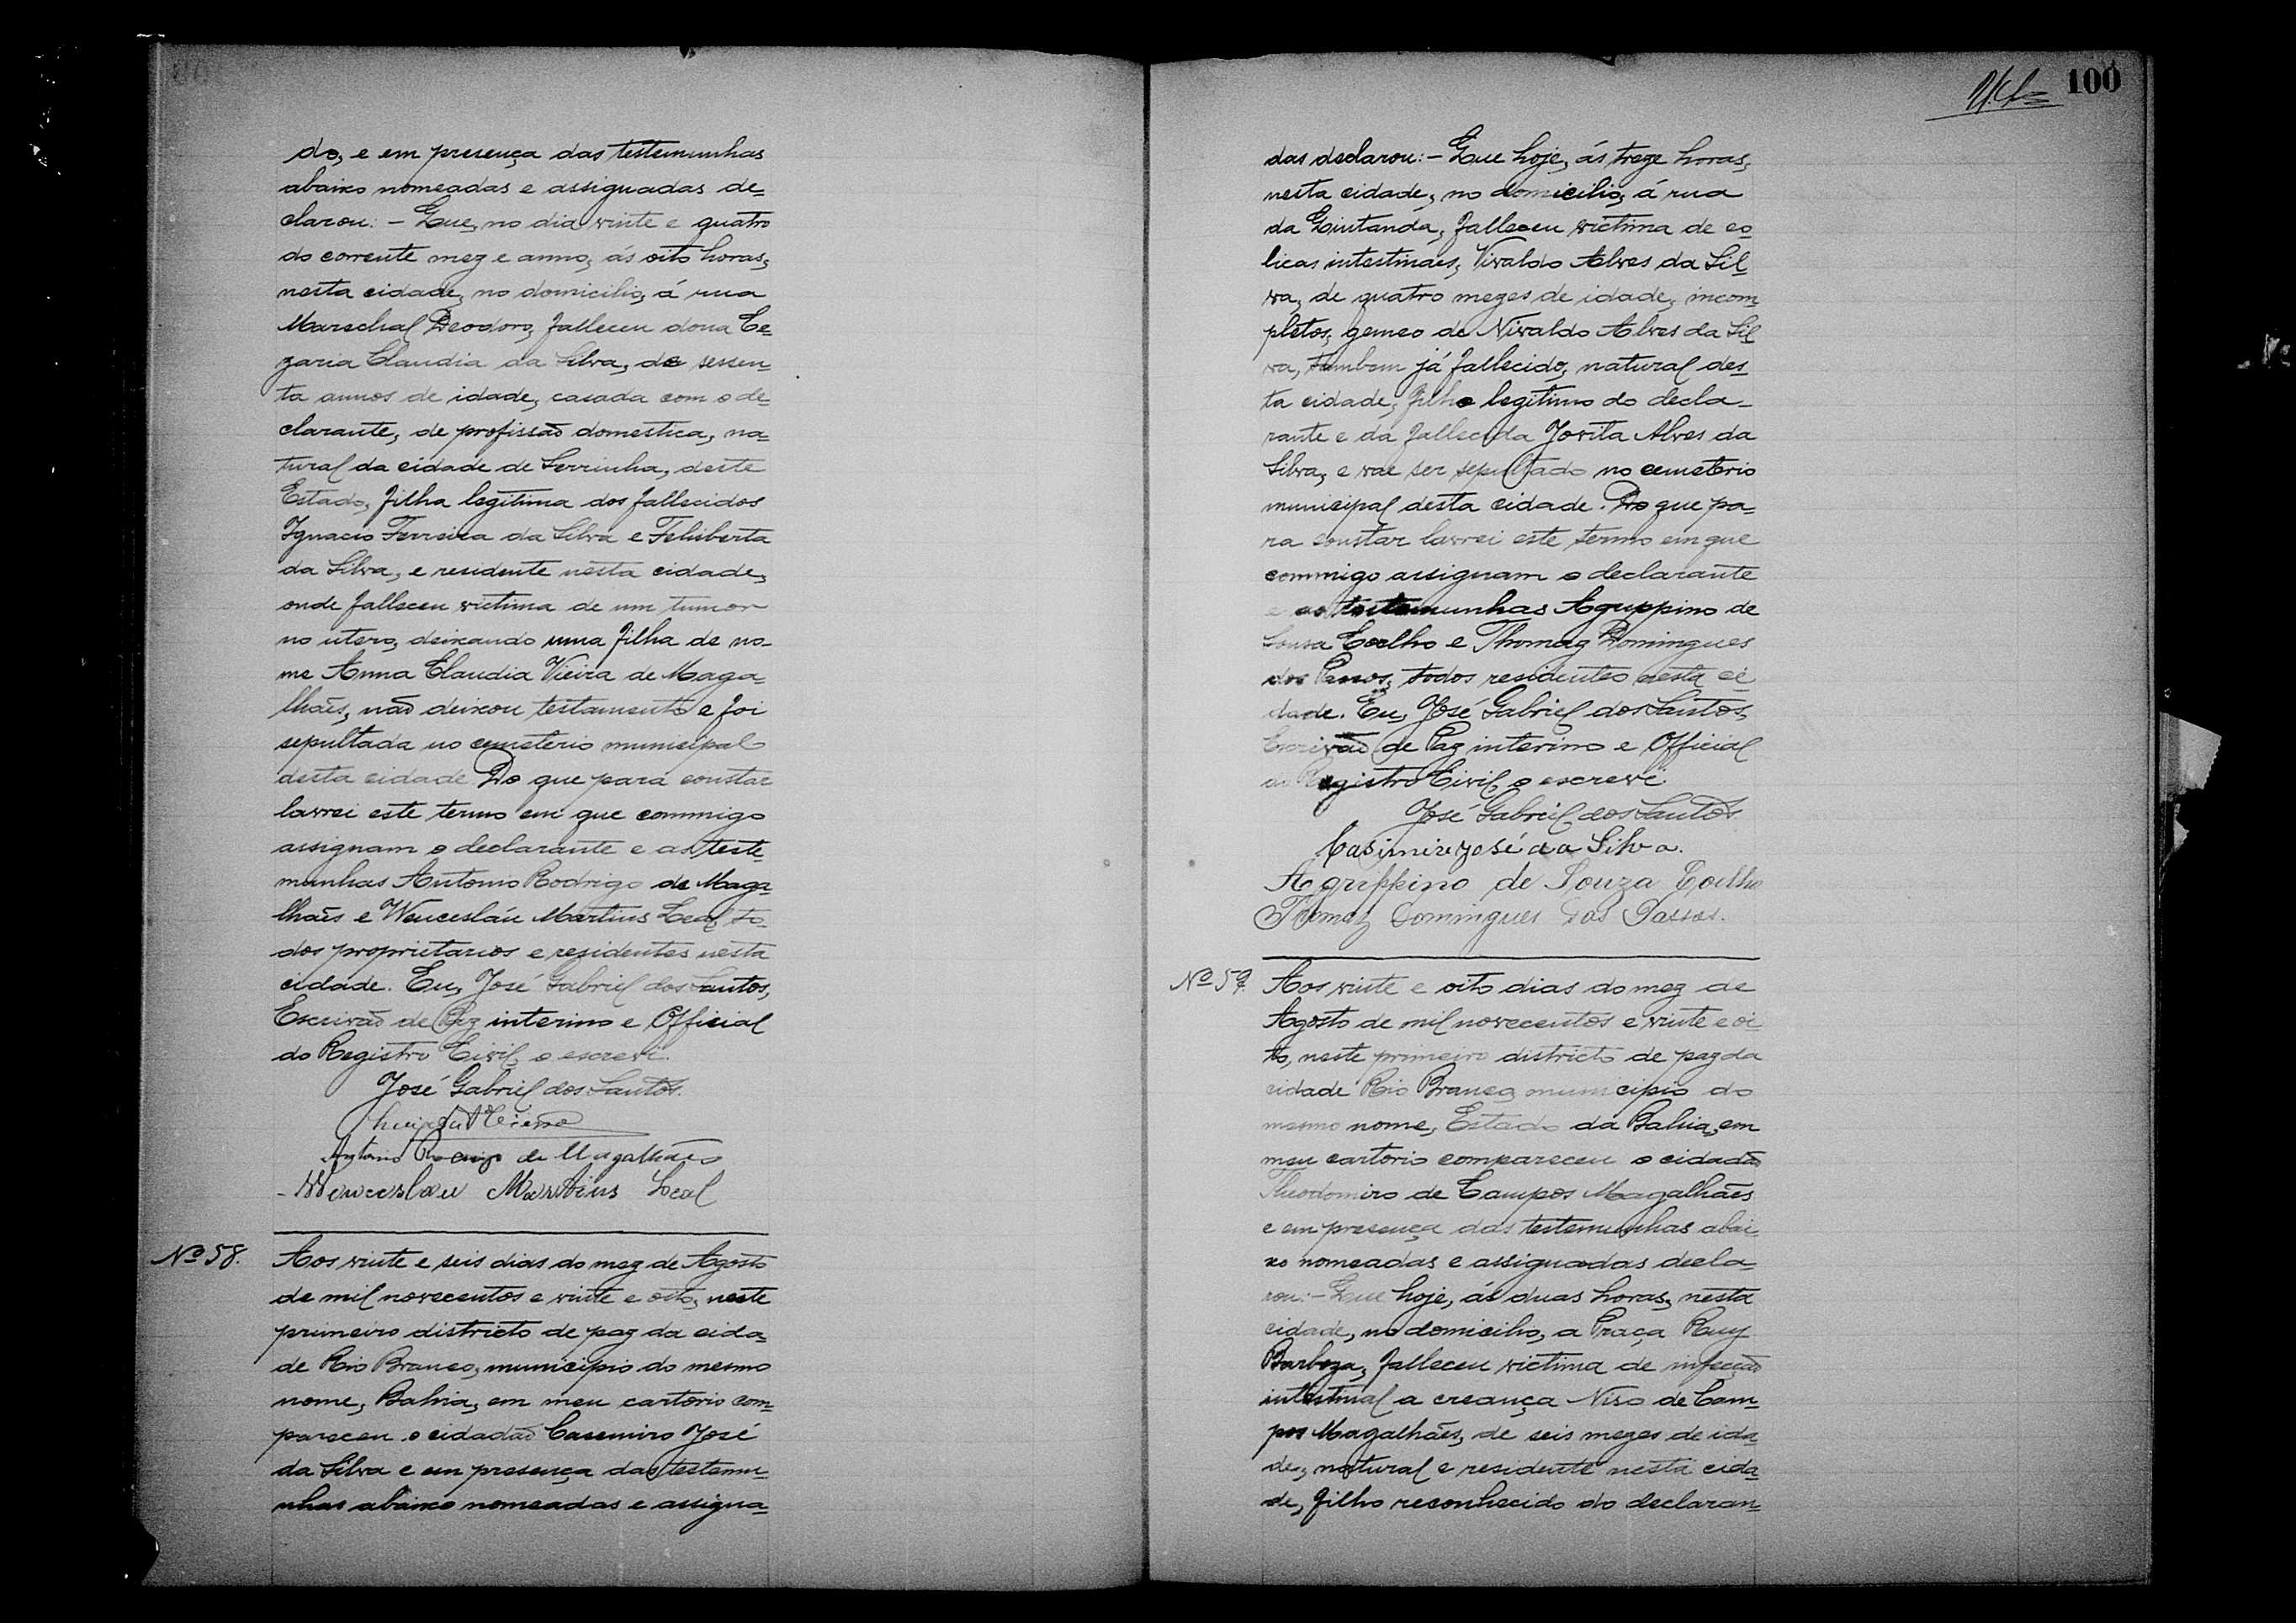 do, e em presença das testemunhas
abaixo nomeadas e assignadas de-
clarou: - Que, no dia vinte e quatro
do corrente mez e anno, ás oito horas,
nesta cidade, no domicilio, á rua
Marechal Deodoro, falleceu dona Ce-
zaria Claudia da Silva, de sessen-
ta annos de idade, casada com o de-
clarante, de profissão domestica, na-
tural da cidade de Serrinha, deste
Estado, filha legitima dos fallecidos
Ignacio Ferreira da Silva e Felisberta
da Silva, e residente nesta cidade,
onde falleceu victima de um tumor
no utero, deixando uma filha de no-
me Anna Claudia Vieira de Maga-
lhães, não deixou testamento e foi
sepultada no cemeterio municipal
desta cidade Do que para constar
lavrei este termo em que commigo
assignam o declarante e as teste-
munhas Antonio Rodrigo de Maga-
lhães e Wencesláu Martins Leal, to-
dos proprietarios e residentes nesta
cidade. Eu, José Gabriel dos Santos,
Escrivão de Paz interino e Official
do Registro Civil, o escrevi.
José Gabriel dos Santos.
Antonio Rodrigo de Magalhães
Wenceslau Martins Leal
Nº 58.
Aos vinte e seis dias do mez de Agosto
de mil novecentos e vinte e oito, neste
primeiro districto de paz da cida-
de Rio Branco, municipio do mesmo
nome, Bahia, em meu cartorio com-
pareceu o cidadão Casemiro José
da Silva e em presença das testemu-
nhas abaixo nomeadas e assigna-
100
das declarou: - Que hoje, ás treze horas,
nesta cidade, no domicilio, á rua
da Quitanda, falleceu victima de co-
licas intestinaes, Vivaldo Alves da Sil-
va, de quatro mezes de idade, incom-
pletos, gemeo de Nivaldo Alves da Sil-
va, tambem já fallecido, natural des-
ta cidade, filho legitimo do decla-
rante e da fallecida Jovita Alves da
Silva, e vae ser sepultado no cemeterio
municipal desta cidade. Do que pa-
ra constar lavrei este termo em que
commigo assignam o declarante
e as testemunhas Agrippino de
Sousa Coelho e Thomaz Domingues
dos Passos, todos residentes nesta ci-
dade. Eu, José Gabriel dos Santos,
Escrivão de Paz interino e Official
do Registro Civil, o escrevi.
José Gabriel dos Santos.
Casimiro José da Silva.
Agrippino de Souza Coelho
Thomaz Domingues dos Passos.
Nº 59.
Aos vinte e oito dias do mez de
Agosto de mil novecentos e vinte e oi-
to, neste primeiro districto de paz da
cidade Rio Branco, municipio do
mesmo nome, Estado da Bahia, em
meu cartorio compareceu o cidadão
Theodomiro de Campos Magalhães
e em presença das testemunhas abai-
xo nomeadas e assignadas decla-
rou: - Que hoje, ás duas horas, nesta
cidade, no domicilio, a Praça Ruy
Barboza, falleceu victima de infecção
intestinal a creança Niso de Cam-
pos Magalhães, de seis mezes de ida-
de, natural e residente nesta cida-
de, filho reconhecido do declaran-